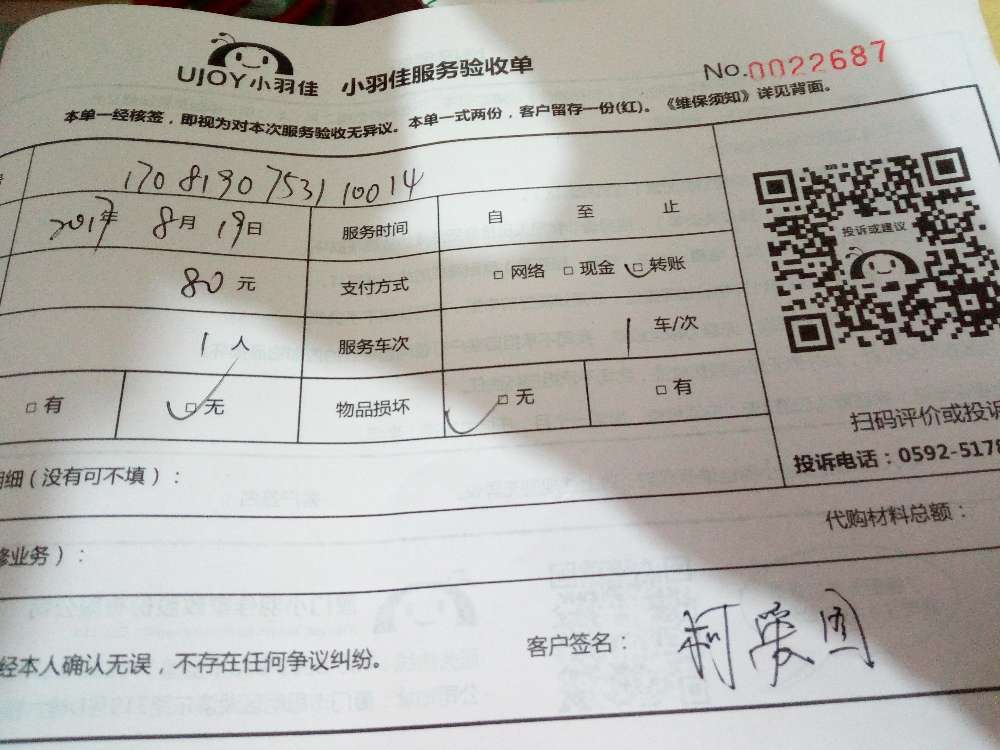 UJOY小羽佳 小羽佳服务验收单 No.0022687
本单一经核签，即视为对本次服务验收无异议。本单一式两份，客户留存一份(红)。《维保须知》详见背面。
1708190753110014
2017年 8月 19日 服务时间 自 至 止
80 元 支付方式 □ 网络 □ 现金 □ 转账
1 人 服务车次 1 车/次
□ 有 □ 无 物品损坏 □ 无 □ 有
投诉或建议
扫码评价或投诉
投诉电话：0592-5178
明细（没有可不填）：
代购材料总额：
修业务）：
经本人确认无误，不存在任何争议纠纷。 客户签名：